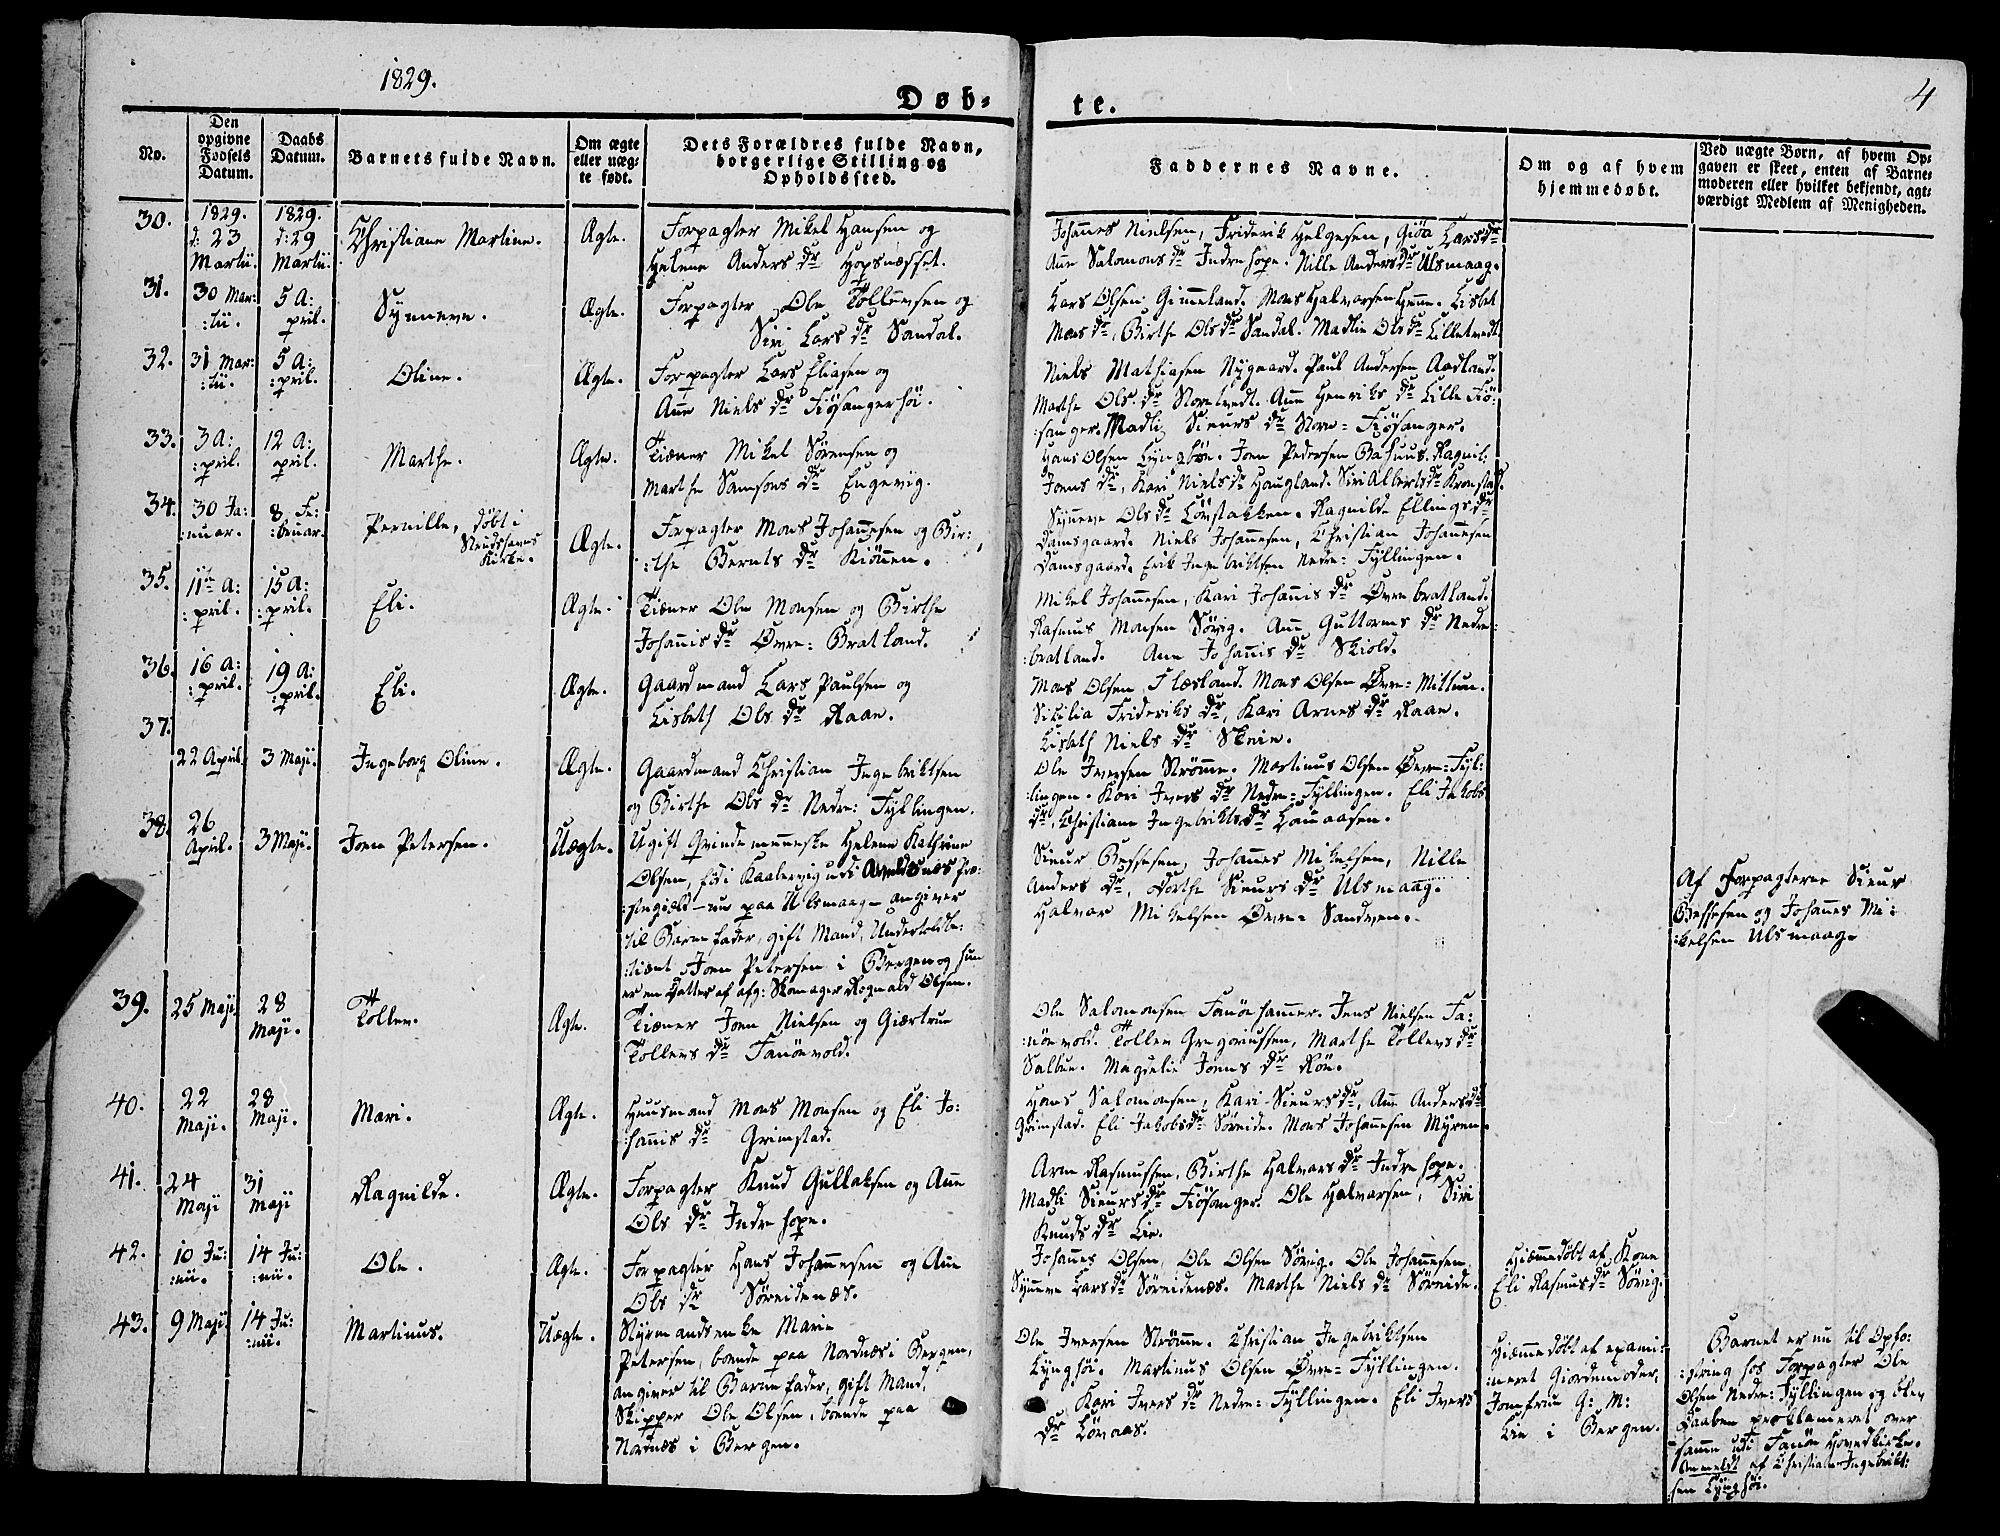 1829.
Døb-
te.
4
No.
Den
opgivne
Fødsels
Datum.
Daabs
Datum.
Barnets fulde Navn.
Om ægte
eller uæg-
te født.
Dets Forældres fulde Navn,
borgerlige Stilling og
Opholdssted.
Faddernes Navne.
Om og af hvem
hjemmedøbt.
Ved uægte Børn, af hvem Op-
gaven er skeet, enten af Barne-
moderen eller hvilket bekjendt, agt-
værdigt Medlem af Menigheden.
30.
1829.
d: 23
Martii.
1829.
d: 29
Martii.
Christiane Martine.
Ægte.
Forpagter Mikel Hansen og
Helene Anders dr Hopsnæsset.
Johannes Nielsen, Friderik Helgesen, Giöa Lars dr
Ane Salomons dr Indrehope. Nille Anders dr Ulsmaag.
31.
30 Mar:
:tii.
5 A:
pril.
Synneve.
Ægte.
Forpagter Ole Tollevsen og
Siri Lars dr Sandal.
Lars Olsen Gimmeland. Mons Halvorsen Lisbet
Mons dr, Birthe Ols dr Sandal. Madlie Ols dr Lilletvedt
32.
31 Mar:
:tii.
5 A:
:pril.
Oline.
Ægte.
Forpagter Lars Eliasen og
Anne Niels dr Fiösangerhöi.
Niels Mathiasen Nygaard. Paul Andersen Aadland.
Marthe Ols dr Storetvedt. Anne Henriks dr Lille Fiö:
:sanger. Madli Sieurs dr Store-Fiösanger.
33.
3 A:
:pril.
12 A:
pril.
Marthe.
Ægte.
Tiener Mikel Sörensen og
Marthe Samsons dr Engevig.
Hans Olsen Lyngböe. Joen Pedersen Ragnil:
Joens dr, Kari Niels dr Haugland. Siri Alberts dr Kronstad.
34.
30 Ja:
:nuar.
8 Fe:
:bruar.
Pernille, döbt i
Kirke.
Ægte.
Forpagter Mons Johannesen og Bir:
:the Bernts dr Kiönnen.
Synneve Ols dr Lövstakken. Ragnilde Ellings dr
Damsgaard. Niels Johannesen, Christian Johannesen
Damsgaard. Erik Ingebriktsen Nedre-Fyllingen.
35.
11te A:
:pril.
15 A:
:pril.
Eli.
Ægte.
Tiener Ole Monsen og Birthe
Johannis dr Övre-Bratland.
Mikel Johannesen, Kari Johannis dr Övrebratland.
Rasmus Monsen Sövig. Anne Guttorms dr Nedre-
:bratland. Ane Johannis dr Skiold.
36.
16 A:
:pril.
19 A:
:pril.
Eli.
Ægte.
Gaardmand Lars Paulsen og
Lisbeth Ols dr Raae.
Mons Olsen Flesland. Mons Olsen Övre-Mittun.
Sicilia Frideriks dr, Kari Arnes dr Raae.
Lisbeth Niels dr Skeie.
37.
22 April
3 Maji.
Ingeborg Oline.
Ægte.
Gaardmand Christian Ingebriktsen
og Birthe Ols dr Nedre-Fyllingen.
Ole Iversen Strömme. Martinus Olsen Övre-Fyl-
:lingen. Kari Ivers dr Nedre-Fyllingen. Eli Jakobs
dr, Christiane Ingebrikts dr Löuaasen.
38.
26
April.
3 Maji.
Joen Petersen.
Uægte.
Ugift Qvindemenneske Helene Kathrine
Olsen, föd i Kaabervig udi Præ:
:stegield - nu paa Ulsmaag - angiver
til Barnefader, gift Mand,
Joen Petersen i Bergen og hun
er en Datter af afg: Skomager Rognald Olsen.
Sieur Bessesen, Johannes Mikelsen, Nille
Anders dr, Dorthe Sieurs dr Ulsmaag.
Halvar Mikelsen Övre-Sandven.
Af Forpagterne Sieur
Bessesen og Johannes Mi:
:kelsen Ulsmaag.
39.
25 Maji
28
Maji.
Tollev.
Ægte.
Tiener Joen Nielsen og Giertrue
Tollevs dr Fanöevold.
Ole Salomonsen Fanöehammer. Jens Nielsen Fa:
:nöevold. Tollev Gregoriussen, Marthe Tollevs dr
Saltue. Magdelie Joens dr Röe.
40.
22
Maji.
28
Maji.
Mari.
Ægte.
Huusmand Mons Monsen og Eli Jo:
:hannis dr Grimstad.
Hans Salomonsen, Kari Sieurs dr, Ane Anders dr
Grimstad. Eli Jakobs dr Söreide. Mons Johannesen Myren.
41.
24
Maji
31
Maji
Ragnilde.
Ægte.
Forpagter Knud Gullaksen og Ane
Ols dr Indrehope.
Arne Rasmussen, Birthe Halvars dr Indrehope.
Madli Sieurs dr Fiösanger. Ole Halvarsen, Siri
Knuds dr Lie.
42.
10 Ju:
:nii.
14 Ju:
:nii.
Ole.
Ægte.
Forpagter Hans Johannesen og Ane
Ols dr Söreidenæs.
Johannes Olsen, Ole Olsen Sövig. Ole Johannesen,
Synneve Lars dr Söreidenæs. Marthe Niels dr Söreide.
Hiemmedöbt af Kone
Eli Rasmus dr Sövig.
43.
9 Maji
14 Ju:
:nii.
Martinus.
Uægte.
Styrmandsenke Marie
Petersen, boende paa Nordnæs i Bergen,
angiver til Barnefader, gift Mand,
Skipper Ole Olsen, boende paa
Nordnæs i Bergen.
Ole Iversen Strömme. Christian Ingebriktsen
Lynghöi. Martinus Olsen Övre-Fyllingen.
Kari Ivers dr Nedre-Fyllingen. Eli Ivers
dr Lövaas.
Hiemmedöbt af exami:
:neret Giordemoder,
Jomfrue G: M:
Lie i Bergen.
Barnet er nu til Opfo:
:string hos Forpagter Ole
Olsen Nedre-Fyllingen og blev
Daaben proklameret over
samme udi Fanöe Hovedkirke.
Anmeldt af Christian Ingebrikt:
:sen Lynghöi.